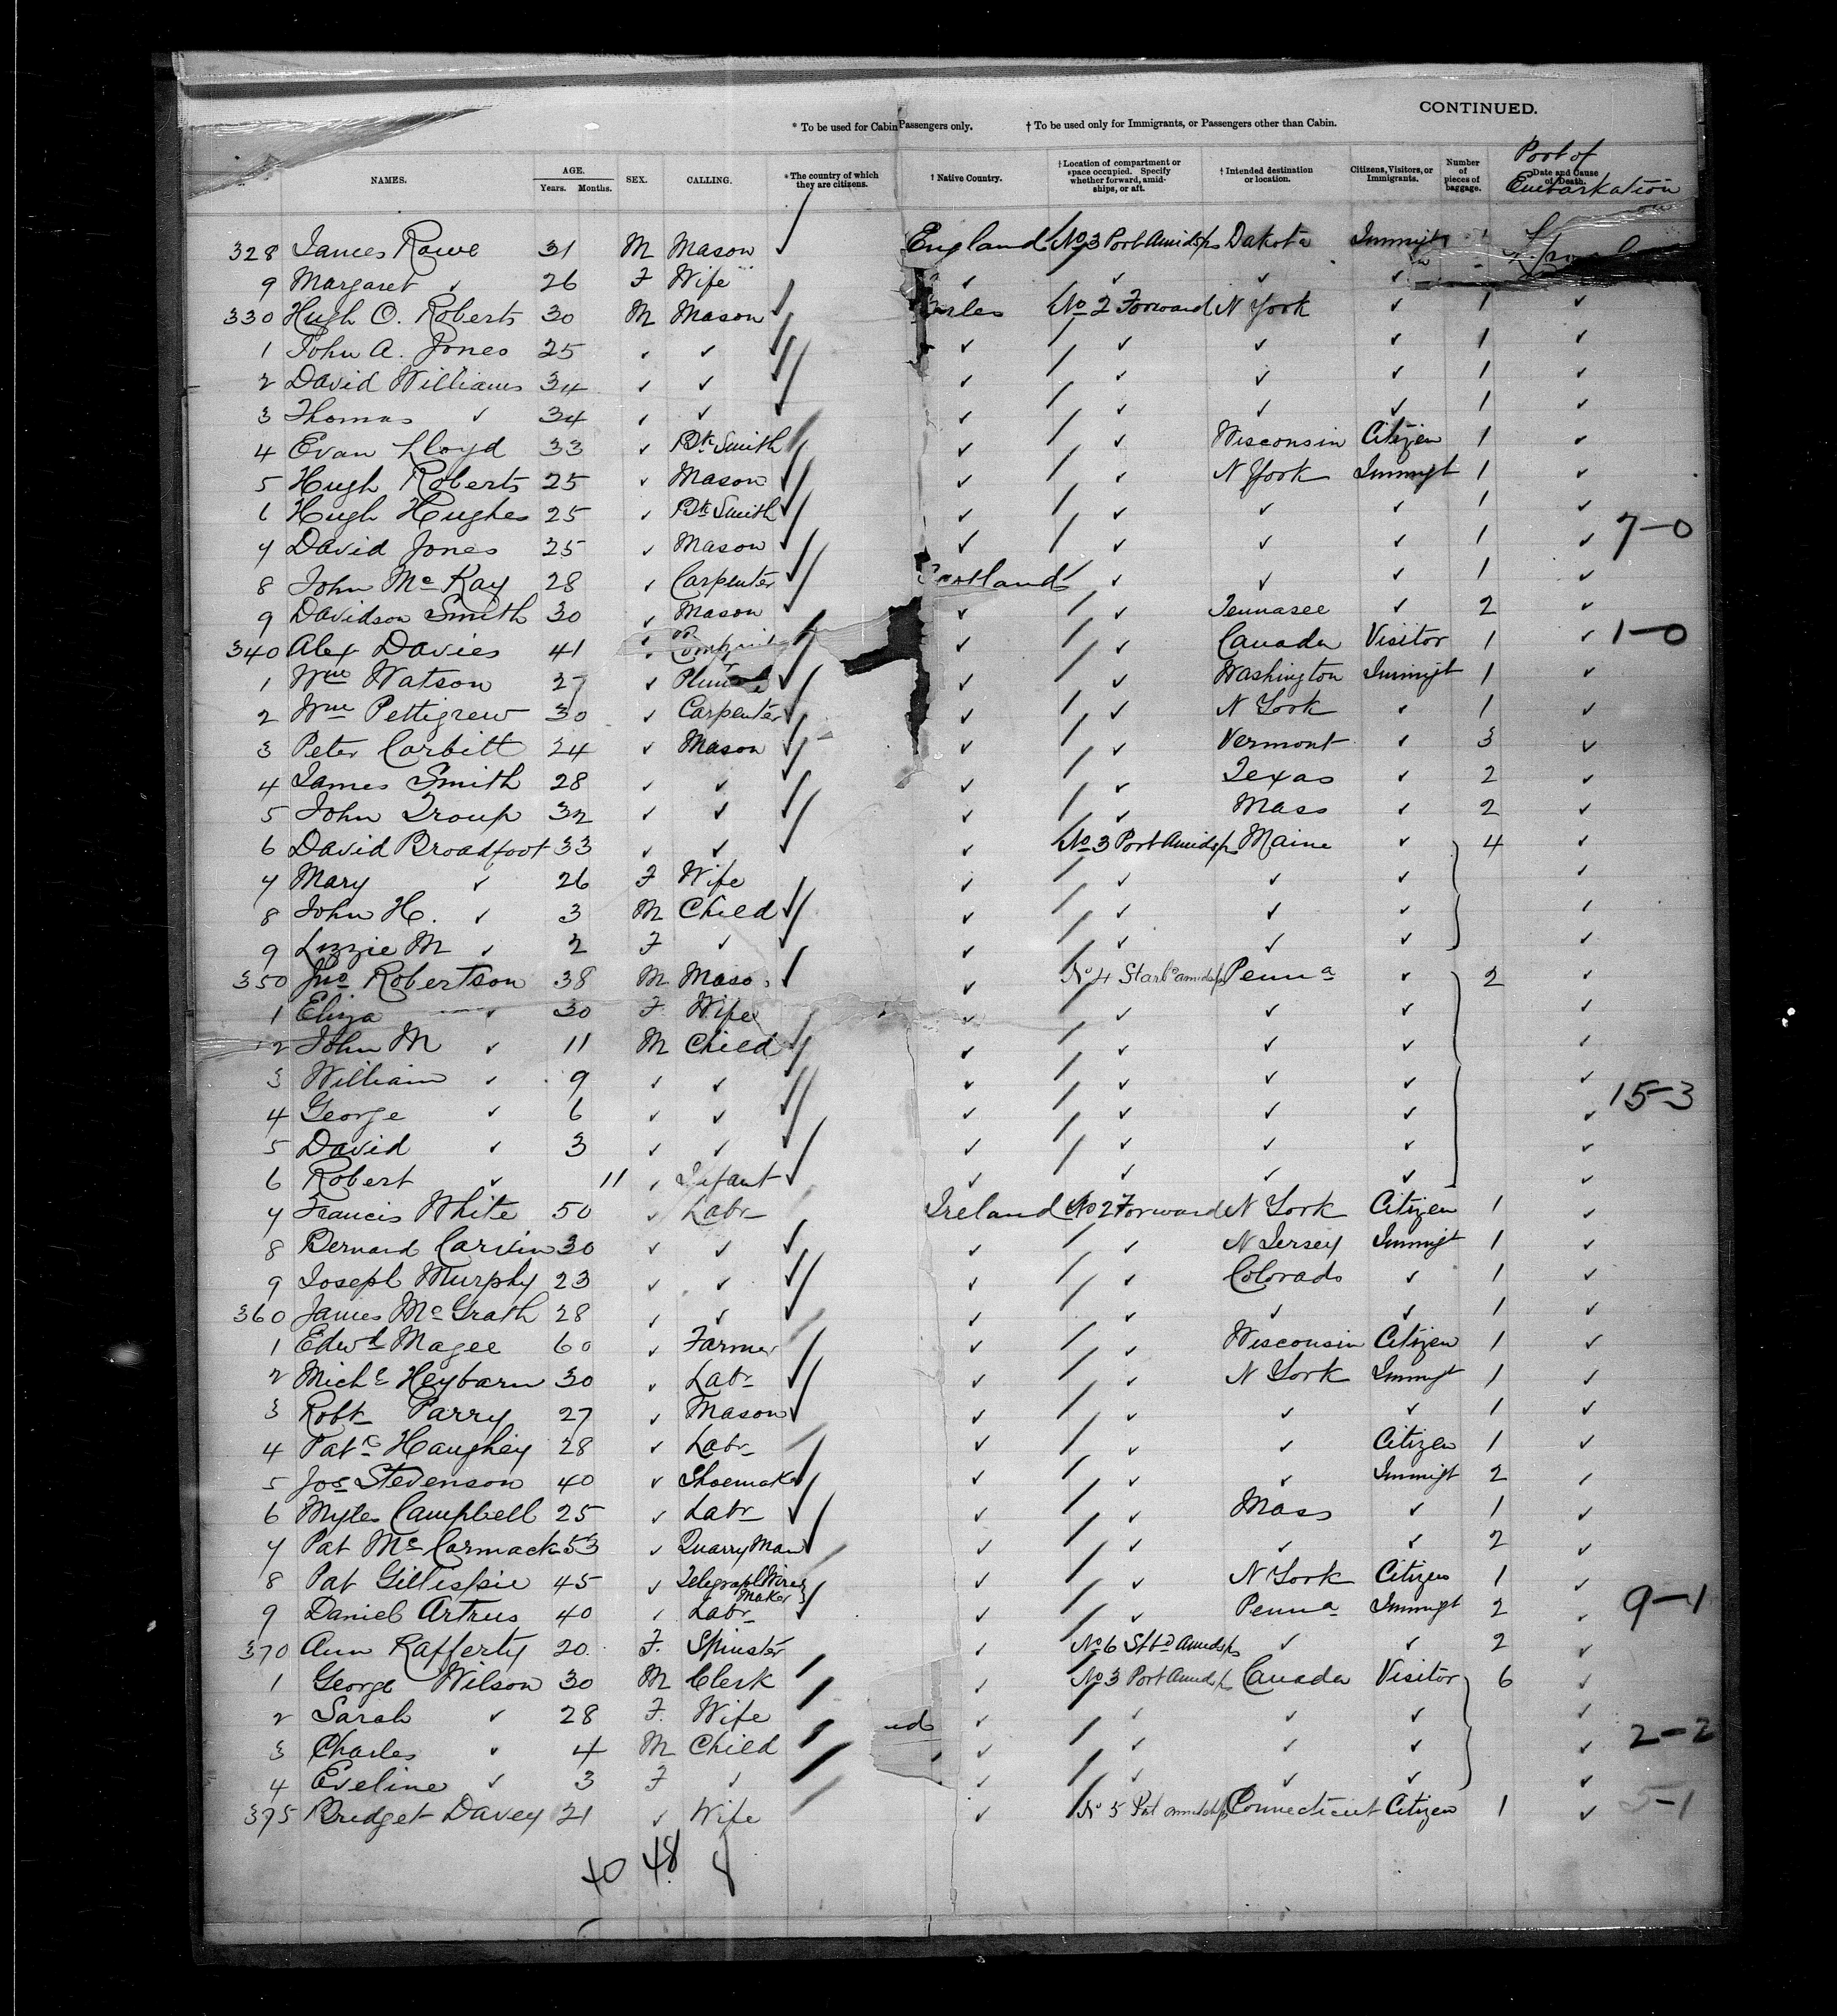 CONTINUED.
* To be used for Cabin Passengers only. † To be used only for Immigrants, or Passengers other than Cabin.
NAMES. AGE. Years. Months. SEX. CALLING. * The country of which they are citizens. † Native Country. † Location of compartment or space occupied. Specify whether forward, amidships, or aft. † Intended destination or location. Citizens, Visitors, or Immigrants. Number of pieces of baggage. Date and Cause of Death. Port of Embarkation
328 James Rowe 31 M Mason England No 3 Port Amidsps Dakota Immigt
9 Margaret ✓ 26 F Wife ✓ ✓ ✓ ✓
330 Hugh O. Roberts 30 M Mason No 2 Forward N York ✓ 1 ✓
1 John A. Jones 25 ✓ ✓ ✓ ✓ ✓ ✓ 1 ✓
2 David Williams 34 ✓ ✓ ✓ ✓ ✓ ✓ 1 ✓
3 Thomas ✓ 34 ✓ ✓ ✓ ✓ ✓ ✓ 1 ✓
4 Evan Lloyd 33 ✓ Blk Smith ✓ ✓ Wisconsin Citizen 1 ✓
5 Hugh Roberts 25 ✓ Mason ✓ ✓ N York Immigt 1 ✓
6 Hugh Hughes 25 ✓ Blk Smith ✓ ✓ ✓ ✓ 1 ✓
7 David Jones 25 ✓ Mason ✓ ✓ ✓ ✓ 1 ✓ 7-0
8 John Mc Kay 28 ✓ Carpenter Scotland ✓ ✓ ✓ 1 ✓
9 Davidson Smith 30 ✓ Mason ✓ ✓ Tennasee ✓ 2 ✓
340 Alex Davies 41 ✓ ✓ ✓ Canada Visitor 1 ✓ 1-0
1 Wm Watson 27 ✓ ✓ ✓ Washington Immigt 1 ✓
2 Wm Pettigrew 30 ✓ Carpenter ✓ ✓ N York ✓ 1 ✓
3 Peter Corbitt 24 ✓ Mason ✓ ✓ Vermont ✓ 3 ✓
4 James Smith 28 ✓ ✓ ✓ ✓ Texas ✓ 2 ✓
5 John Troup 32 ✓ ✓ ✓ ✓ Mass ✓ 2 ✓
6 David Broadfoot 33 ✓ ✓ ✓ No 3 Port Amidsps Maine ✓ 4 ✓
7 Mary ✓ 26 F Wife ✓ ✓ ✓ ✓ ✓
8 John H. ✓ 3 M Child ✓ ✓ ✓ ✓ ✓
9 Lizzie M ✓ 2 F ✓ ✓ ✓ ✓ ✓ ✓
350 Jno Robertson 38 M Mason ✓ No 4 Starbd amidsps Penna ✓ 2 ✓
1 Eliza ✓ 30 F Wife ✓ ✓ ✓ ✓ ✓
2 John M ✓ 11 M Child ✓ ✓ ✓ ✓ ✓
3 William ✓ 9 ✓ ✓ ✓ ✓ ✓ ✓ ✓ 15-3
4 George ✓ 6 ✓ ✓ ✓ ✓ ✓ ✓ ✓
5 David ✓ 3 ✓ ✓ ✓ ✓ ✓ ✓ ✓
6 Robert ✓ 11 ✓ Infant ✓ ✓ ✓ ✓ ✓
7 Francis White 50 ✓ Labr Ireland No 2 Forward N York Citizen 1 ✓
8 Bernard Carvin 30 ✓ ✓ ✓ ✓ N Jersey Immigt 1 ✓
9 Joseph Murphy 23 ✓ ✓ ✓ ✓ Colorado ✓ 1 ✓
360 James Mc Grath 28 ✓ ✓ ✓ ✓ ✓ ✓ 1 ✓
1 Edwd Magee 60 ✓ Farmer ✓ ✓ Wisconsin Citizen 1 ✓
2 Michl Heybarn 30 ✓ Labr ✓ ✓ N York Immigt 1 ✓
3 Robt Parry 27 ✓ Mason ✓ ✓ ✓ ✓ 1 ✓
4 Patk Haughey 28 ✓ Labr ✓ ✓ ✓ Citizen 1 ✓
5 Jos Stevenson 40 ✓ Shoemaker ✓ ✓ ✓ Immigt 2 ✓
6 Myles Campbell 25 ✓ Labr ✓ ✓ Mass ✓ 1 ✓
7 Pat Mc Cormack 53 ✓ Quarry Man ✓ ✓ ✓ ✓ 2 ✓
8 Pat Gillispie 45 ✓ Telegraph Wire Maker ✓ ✓ N York Citizen 1 ✓
9 Daniel Artrus 40 ✓ Labr ✓ ✓ Penna Immigt 2 ✓ 9-1
370 Ann Rafferty 20 F. Spinster ✓ No 6 Stbd Amidsps ✓ ✓ 2 ✓
1 George Wilson 30 M Clerk ✓ No 3 Port Amidsps Canada Visitor 6 ✓
2 Sarah ✓ 28 F. Wife ✓ ✓ ✓ ✓ ✓
3 Charles ✓ 4 M Child ✓ ✓ ✓ ✓ ✓ 2-2
4 Eveline ✓ 3 F ✓ ✓ ✓ ✓ ✓ ✓
375 Bridget Davey 21 ✓ Wife ✓ No 5 Port amidsps Connecticut Citizen 1 ✓ 5-1
40 48 8